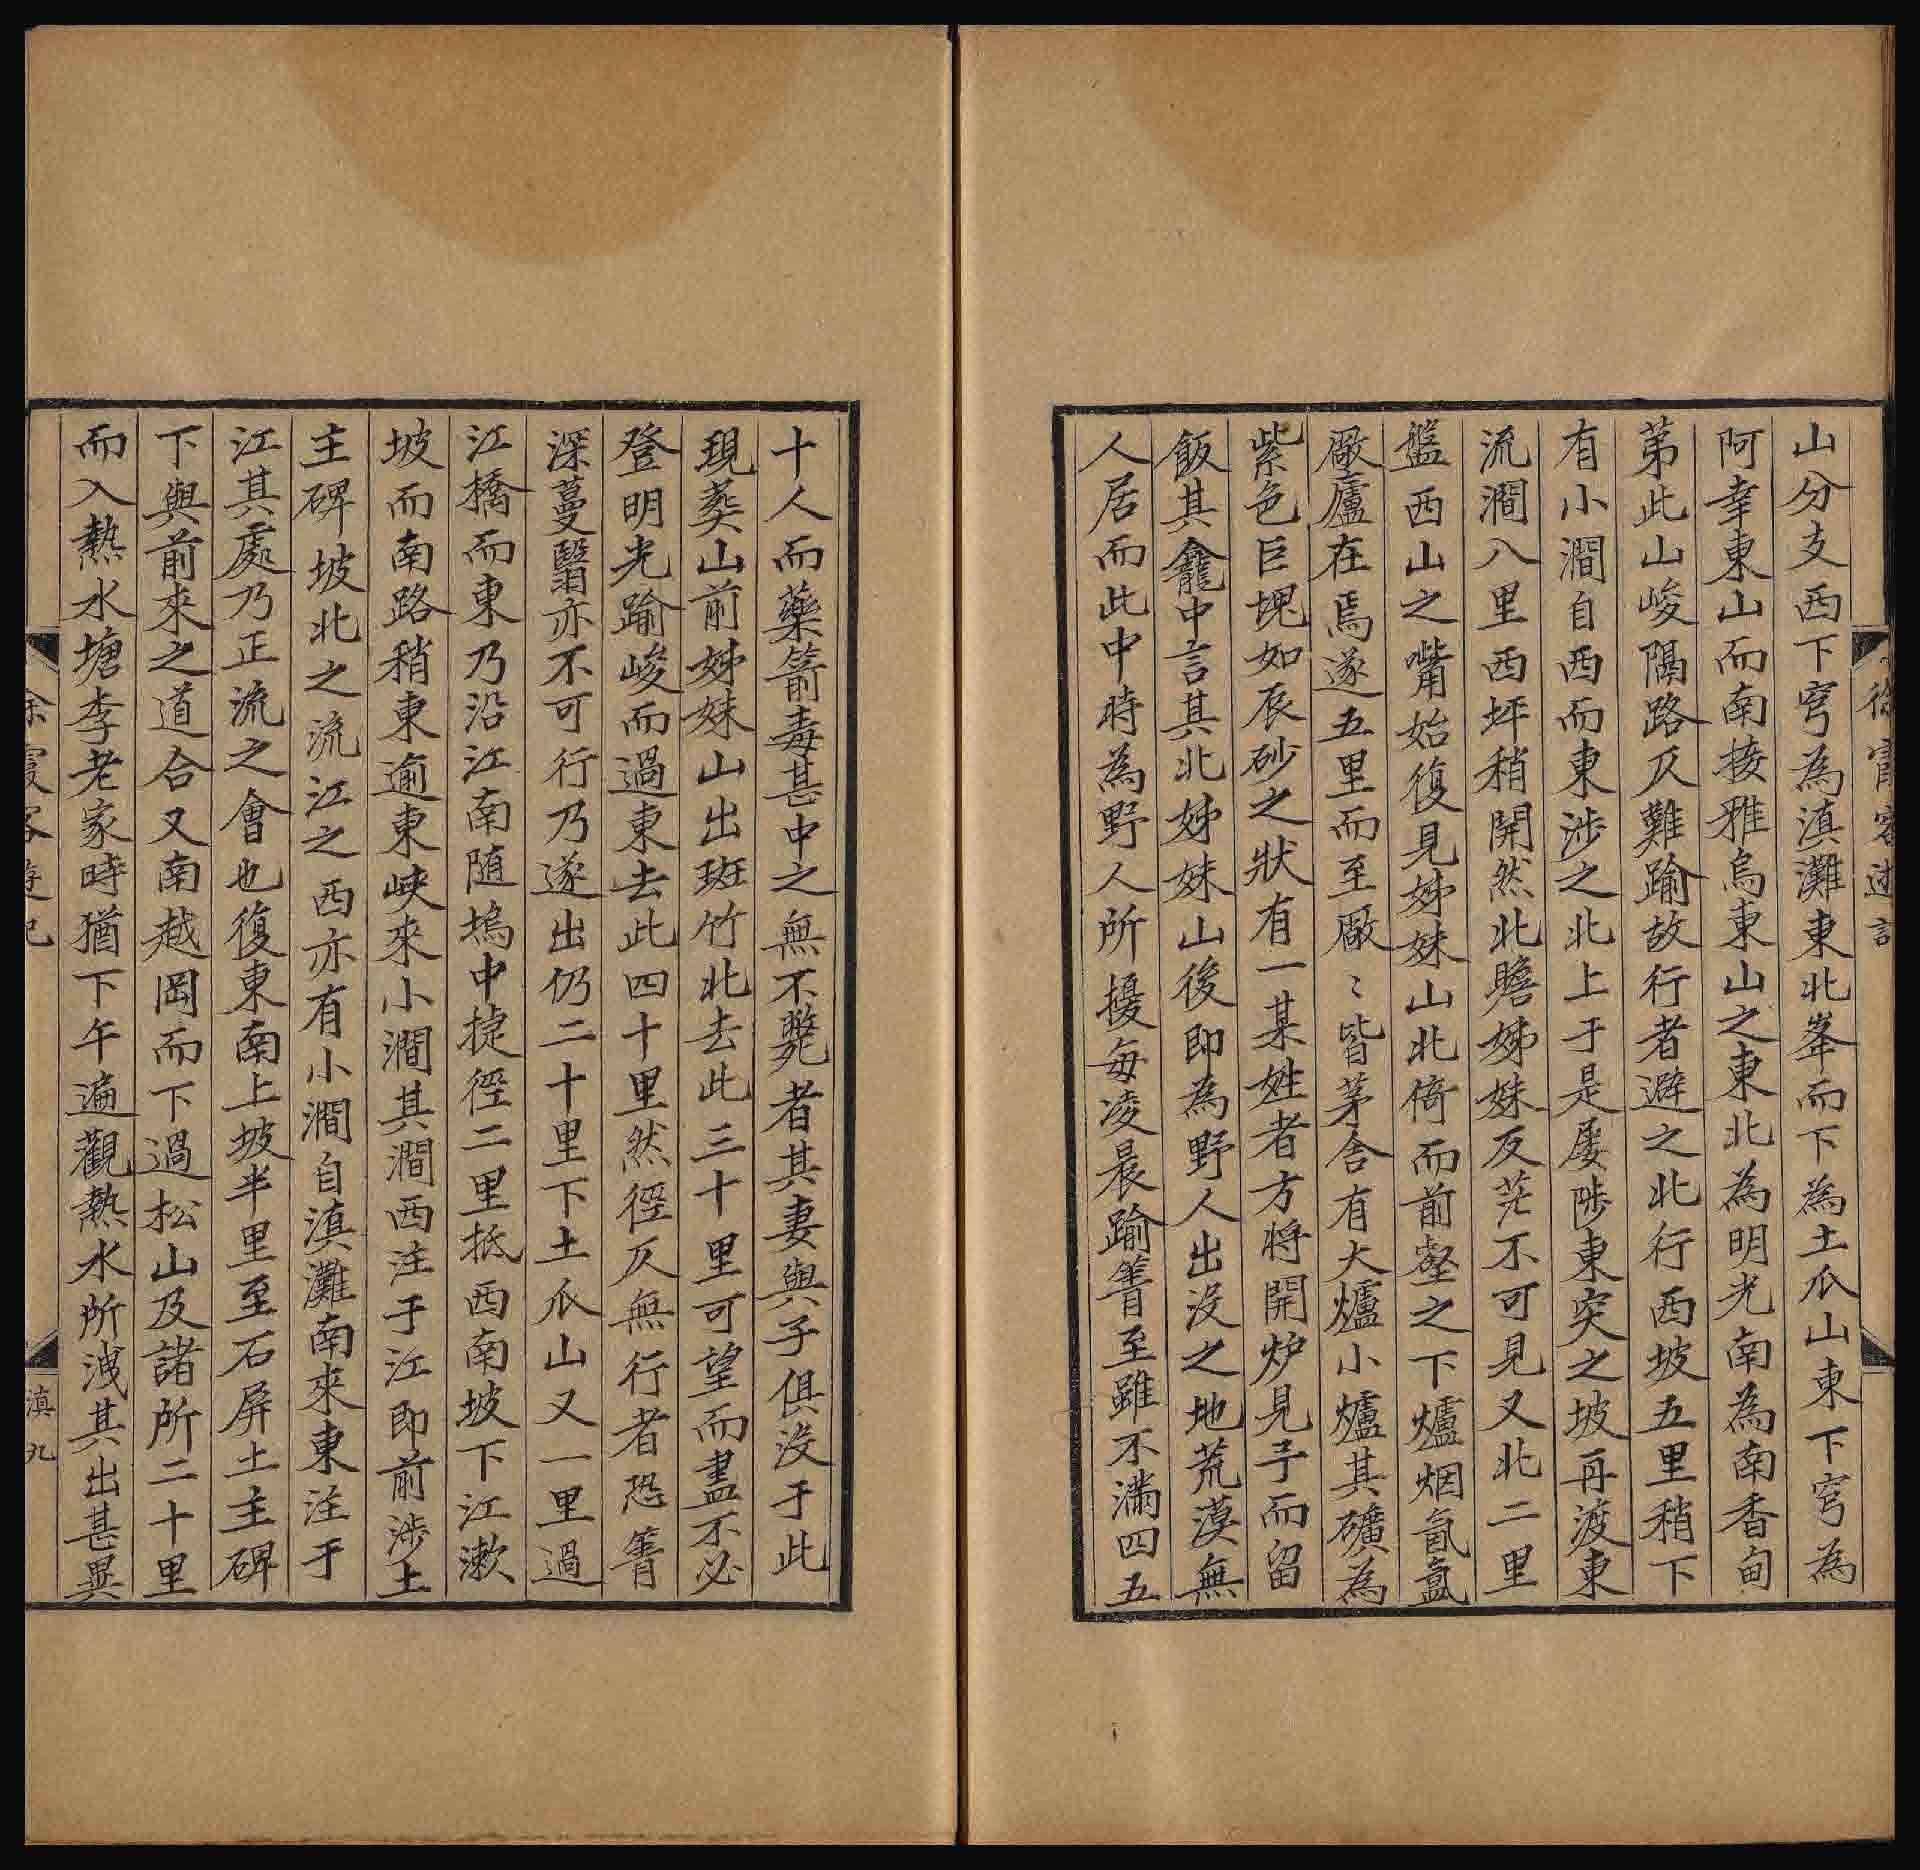 山分支西下穹為滇灘東北峯而下為土瓜山東下穹為
阿幸東山而南接雅烏東山之東北為明光南為南香甸
苐此山峻隔路仄難踰故行者避之北行西坡五里稍下
有小澗自西而東涉之北上于是屢陟東突之坡再渡東
流澗八里西坪稍開然北瞻姊妹反茫不可見又北二里
盤西山之嘴始復見姊妹山北倚而前壑之下爐烟氤氳
厰廬在焉遂五里而至厰〻皆茅舍有大爐小爐其礦為
紫色巨塊如辰砂之狀有一某姓者方將開炉見予而留
飯其龕中言其北姊妹山後即為野人出没之地荒漠無
人居而此中時為野人所擾每凌晨踰箐至雖不滿四五
徐霞客遊記
十人而藥箭毒甚中之無不斃者其妻與子俱没于此
現葬山前姊妹山出斑竹北去此三十里可望而盡不必
登明光踰峻而過東去此四十里然徑仄無行者恐箐
深蔓翳亦不可行乃遂出仍二十里下土瓜山又一里過
江橋而東乃沿江南随塢中捷徑二里抵西南坡下江漱
坡而南路稍東逾東峽來小澗其澗西注于江即前涉土
主碑坡北之流江之西亦有小澗自滇灘南來東注于
江其處乃正流之會也復東南上坡半里至石屏土主碑
下與前來之道合又南越岡而下過松山及諸所二十里
而入熱水塘李老家時猶下午遍觀熱水所洩其出甚異
徐霞客遊記
滇九